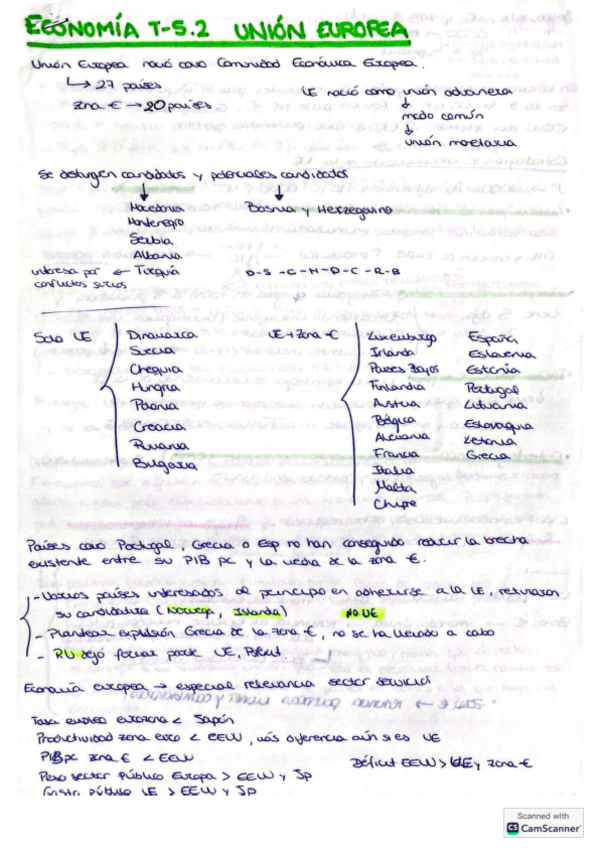 ECONOMÍA T-5.2 UNIÓN EUROPEA
Unión Europea nació como Comunidad Económica Europea.
↳ 27 países
zona € → 20 países
UE nació como unión aduanera
↓
mdo común
↓
unión monetaria
Se distinguen candidatos y potenciales candidatos
Macedonia
Montenegro
Serbia
Albania
interesa por ← Turquía
conflictos sirios
Bosnia y Herzegovina
D-S-C-H-P-C-R-B
Solo UE
Dinamarca
Suecia
Chequia
Hungría
Polonia
Croacia
Rumanía
Bulgaria
UE + zona €
Luxemburgo
Irlanda
Países Bajos
Finlandia
Austria
Bélgica
Alemania
Francia
Italia
Malta
Chipre
España
Eslovenia
Estonia
Portugal
Lituania
Eslovaquia
Letonia
Grecia
Países como Portugal, Grecia o Esp no han conseguido reducir la brecha
existente entre su PIB pc y la media de la zona €.
- Varios países interesados al principio en adherirse a la UE, retiraron
su candidatura (Noruega, Islandia) NO UE
- Plantear expulsión Grecia de la zona €, no se ha llevado a cabo
- RU dejó formar parte UE, Brexit.
Economía europea → especial relevancia sector servicios
Tasa empleo eurozona < Japón
Productividad zona euro < EEUU, más diferencia aún si es UE
PIBpc zona € < EEUU
Déficit EEUU > UE y zona €
Peso sector público Europa > EEUU y Jp
Gasto público UE > EEUU y Jp
Scanned with
CS CamScanner